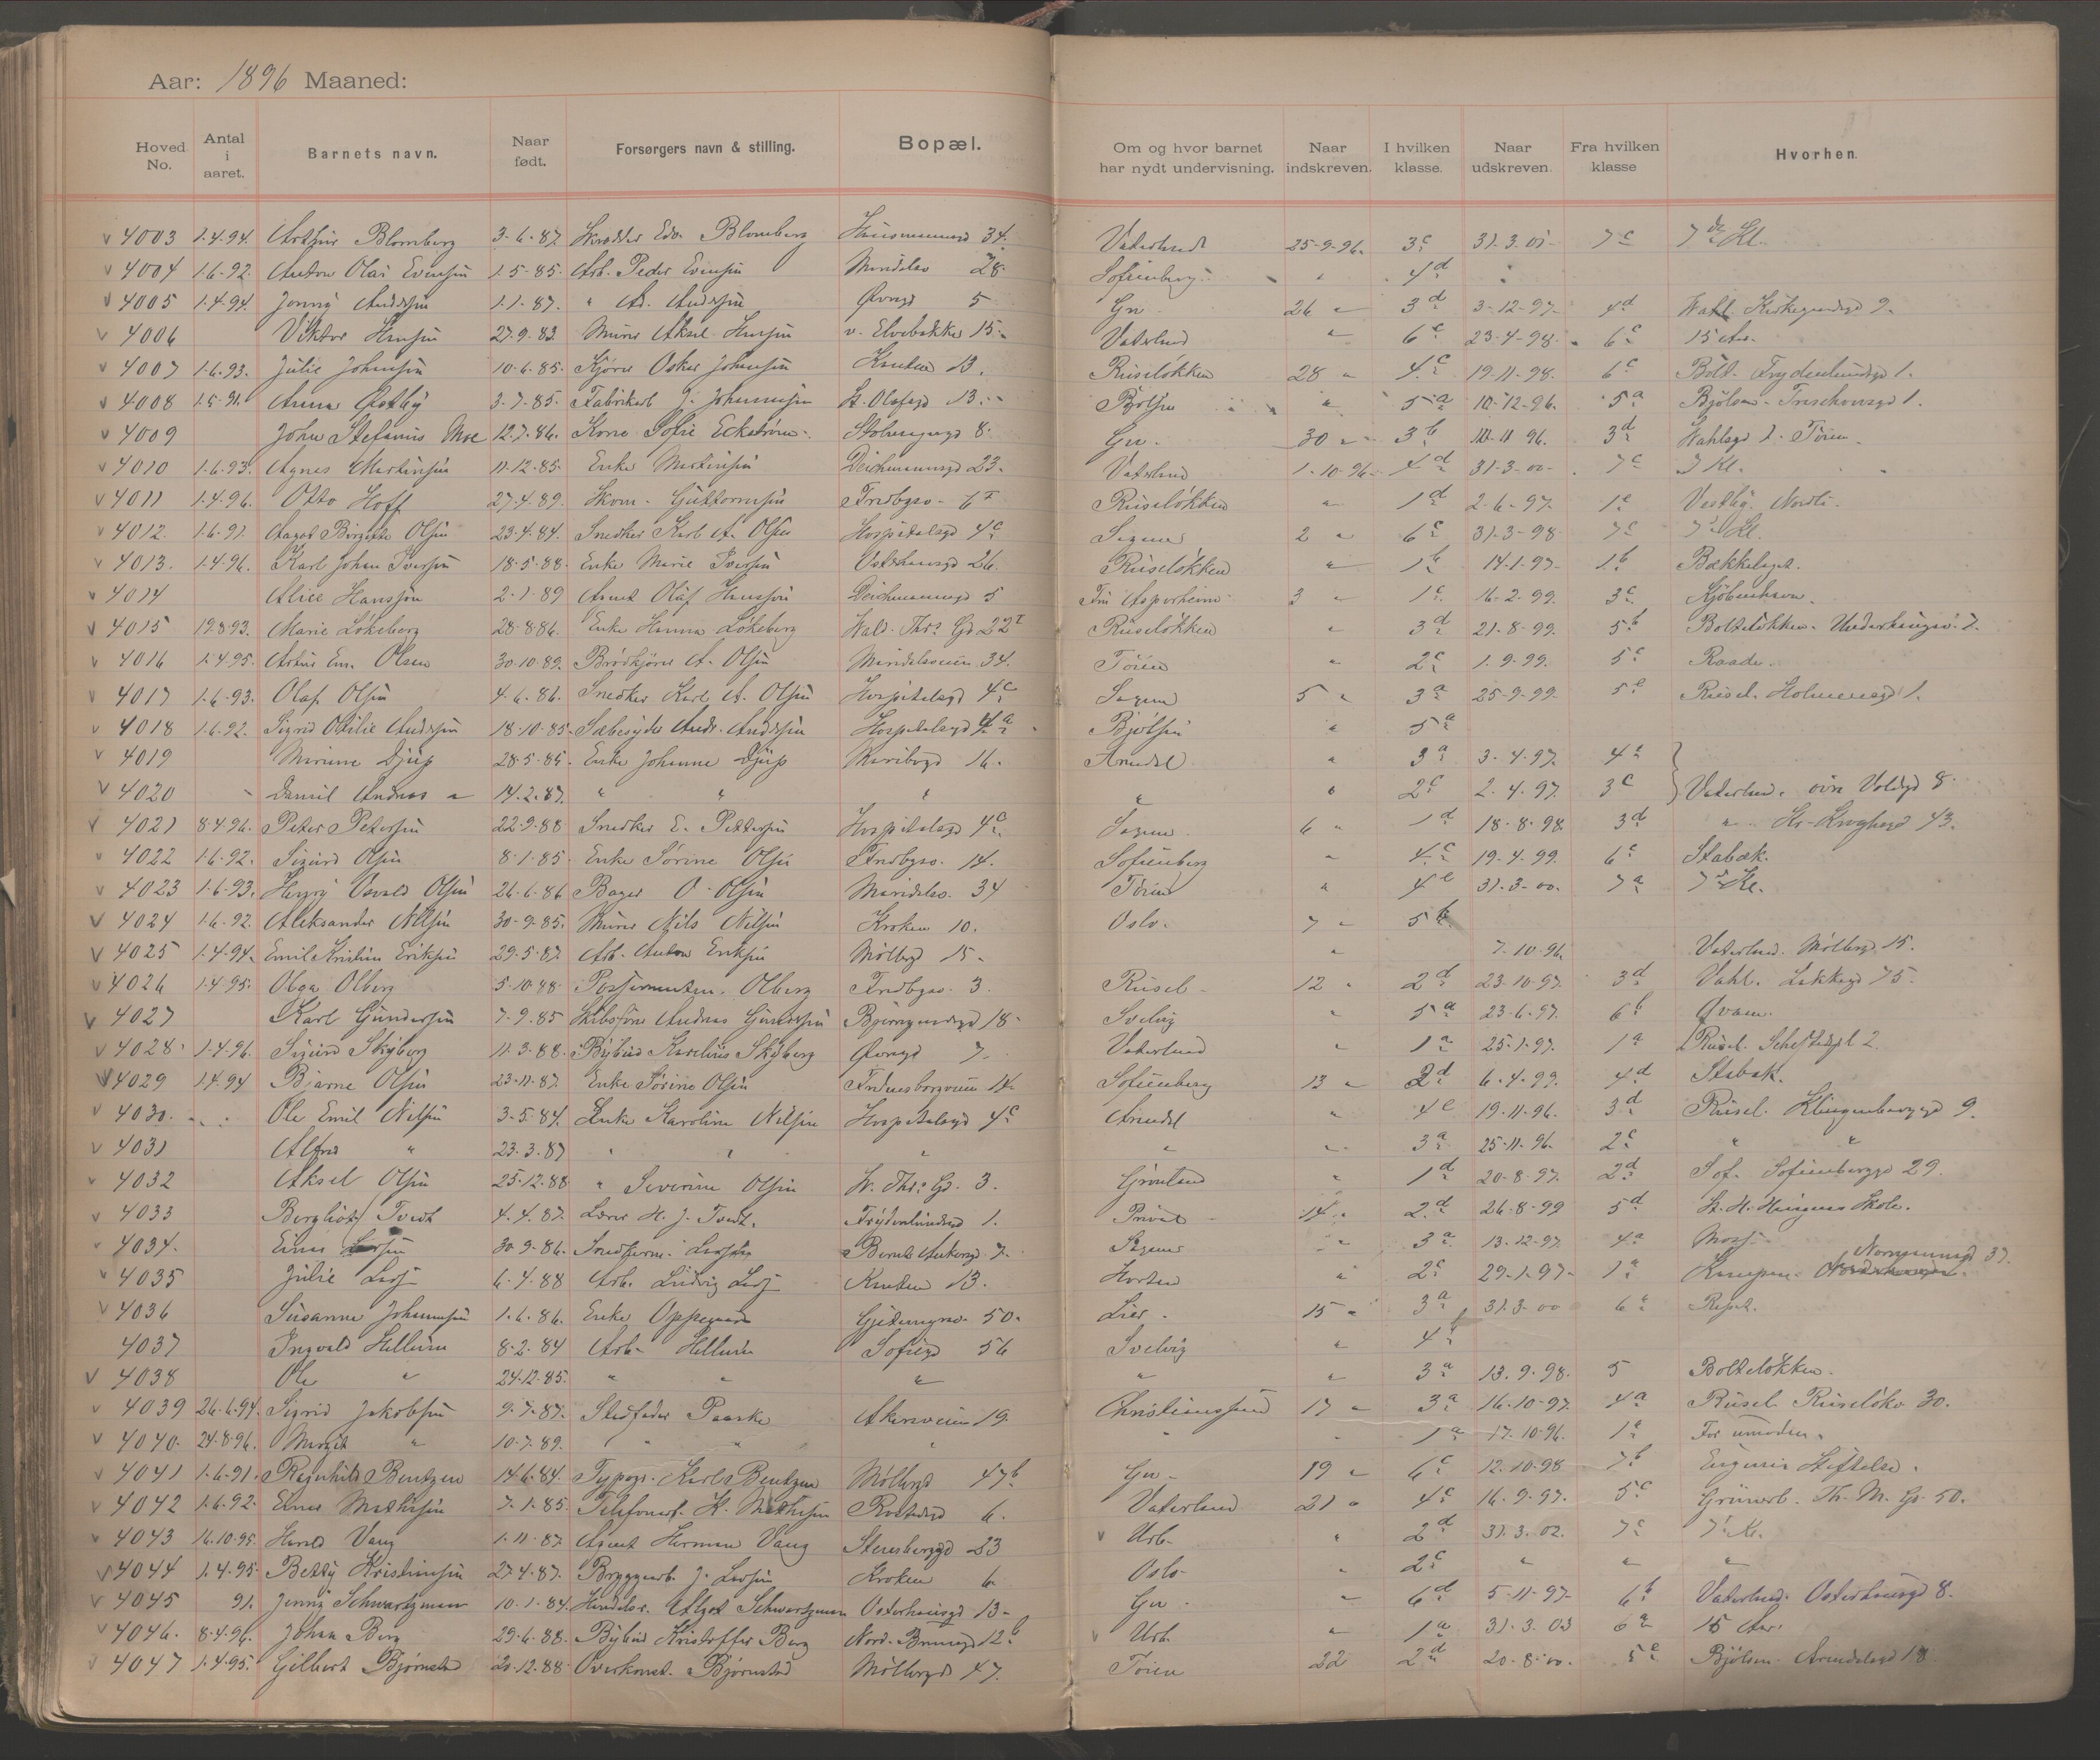 Aar: 1896 Maaned:
Hoved No. Antal i aaret. Barnets navn. Naar født. Forsørgers navn & stilling. Bopæl. Om og hvor barnet har nydt undervisning. Naar indskreven. I hvilken klasse. Naar udskreven. Fra hvilken klasse Hvorhen.
4003 1.4.94. Arthur Blomberg 3-6-87 Skrædder Edv. Blomberg 34. Vaterland 25-9-96. 3c 31.3.01- 7c 7de Kl.
4004 1.6.92. Anton Olai Evensen 1-5-85. Arb. Peder Evensen 28. Sofienberg " 4d
4005 1.4.94. Jenny Andersen 1.1.87. " Andersen Øvregd 5 Grl. 26 " 3d 3-12-97. 4d Vahl. 9.
4006 Viktor Hansen 27.9.83. Murer Aksel Hansen v. Elvebakken 15. Vaterland " 6c 23-4-98. 6c 15 Aar.
4007 1.6.93. Julie Johansen 10-6-85. Kjører Oskar Johansen 13. Ruseløkken 28 " 4c 19-11-98. 6c Bolt. Frydenlundsgd 1.
4008 1.5.91. Anna Østby 3-7-85. Fabrikarb. J. Johannesen St. Olafsgd 13. Bjølsen " 5a 10-12-96. 5a Bjølsen 1.
4009 John Stefanus Moe 12.7.86. Kone Sofie Eckstrøm 8. Grl. 30 " 3b 11-96. 3d Tøien
4010 1.6.93. Agnes Martinsen 11-12-85. Enke Martinsen Deichmannsgd 23. Vaterland 1-10-96. 4d 31-3-00- 7c 7 Kl.
4011 1.4.96. Otto Hoff 27.4.89. Guttormsen 6 I Ruseløkken " 1d 2-6-97. 1e Vestby.
4012. 1.6.91. Birgitte Olsen 23.4.84. Snedker Karl A. Olsen Hospitalsgd 4c Sagene 2 " 6c 31-3-98 7c 7de Kl.
4013. 1.4.96. Karl Johan Iversen 18-5-88. Enke Marie Iversen Osterhausgd 26. Ruseløkken " 1b 14-1-97- 1b Bækkelaget.
4014 Alice Hansson 2-1-89 Agent Olaf Hansson Deichmannsgd 5 3 " 1c 16-2-99. 3c Kjøbenhavn.
4015 19.8.93. Marie Løkeberg 28-8-86. Enke Hanna Løkeberg Wald. Thr. Gd 22 I Ruseløkken " 3d 21-8-99. 5b Bolteløkken. Underhaugsv. 7.
4016 1.4.95. Olsen 30-10-89. Brødkjører A. Olsen Maridalsveien 34. Tøien " 2c 1-9-99. 5c Raade.
4017 1.6.93. Olaf Olsen 4-6-86. Snedker Karl A. Olsen Hospitalsgd 4c Sagene 5 " 3a 25-9-99. 5e Rusel. Holmensgd 1.
4018 1.6.92. Sigrid Otilie Andersen 18-10-85. Andr. Andersen Hospitalsgd 4a Bjølsen " 5a
4019 Djup 28-5-85. Enke Johanne Djup Maribogd 16. Arendal " 3a 3-4-97. 4c
4020 Daniel Andreas " 14.2.87. " " " " " 2c 2-4-97. 3c Vaterland. øvre Voldgd 8.
4021 8.4.96. Peter Petersen 22-9-88. Snedker E. Pettersen Hospitalsgd 4c Sagene 6 " 1d 18-8-98. 3d " Kr. Kroghsgd 43.
4022 1.6.92. Sigurd Olsen 8-1-85. Enke Sørine Olsen 14. Sofienberg " 4c 19-4-99. 6c Stabæk.
4023 1.6.93. Osvald Olsen 26-6-86 Bager O. Olsen Maridalsv. 34 Tøien " 4e 31-3-00. 7a 7de Kl.
4024 1.6.92. Aleksander Nilsen 30-9-85. Murer Nils Nilsen Kroken 10. Oslo. 7 " 5b
4025 1.4.94. Emil Kristian Eriksen 29.5.87. Arb. Anton Eriksen Møllergd 15. " 7-10-96. Vaterland. Møllergd 15.
4026 1.4.95. Olga Olberg 5-10-88 Olberg 3. Rusel. 12 " 2d 23-10-97. 3d Vahl. Lakkegd 75.
4027 Karl Gundersen 7-9-85 Skibsfører Andreas Gundersen 18. Svelvig " 5a 23-6-97. 6b
4028. 1.4.96. Sigurd Skyberg 11-3-88. Bybud Karelius Skyberg Øvregd 7. Vaterland " 1a 25-1-97. 1a Rusel. 2.
4029 1.4.94 Bjarne Olsen 23-11-87. Enke Sørine Olsen 14. Sofienberg 13 " 2d 6-4-99. 4d Stabæk.
4030. Ole Emil Nilsen 3-5-84. Enke Karoline Nilsen Hospitalsgd 4c Arendal " 4e 19-11-96. 3d Rusel. Klingenberggd 9.
4031 Alfred " 23-3-87 " " " " " 3a 25-11-96. 2c " "
4032 Aksel Olsen 25-12-88 " Severine Olsen W. Thr. Gd. 3. Grønland " 1d 20-8-97. 2d Sof. Sofienberggd 29.
4033 Bergliot Tvedt 4.4.87. Lærer H. J. Tvedt. Frydenlundsgd 1. Privat 14 " 2d 26-8-99 5d
4034. Einar Larsen 30-9-86. Bernt Ankersgd 7. Sagene " 3a 13-12-97. 4a Moss.
4035 Julie 6.4.88 Arb. Ludvig 13. Horten " 2c 29-1-97- 1a Kampen. 37.
4036 Susanne Johannesen 1-6-86. Enke Oppegaard 50. Lier. 15 " 3a 31.3-00 6a
4037 Ingvald Hellum 8-2-84 Arb. Hellum Sofiegd 56 Svelvig " 4
4038 Ole " 24-12-85. " " " " " 3a 13-9-98. 5 Bolteløkken.
4039 26.6.94. Sigrid Jakobsen 9-7-87. Stedfader Paaske Akersveien 19. Christianssund 17 " 3a 16-10-97. 4a Rusel. Ruseløkv. 30.
4040. 24.8.96. Margit " 10-7-89. " " " " " 1a 17-10-96. 1a For umoden.
4041 1.6.91. Ragnhild Bentzen 14-6-84. Typogr. Karl Bentzen Møllergd 47b Grl. 19 " 6c 12-10-98 7b Eugenia Stiftelse.
4042 1.6.92. Einar Mathisen 7-1-85. Telefonarb. H. Mathisen 6. Vaterland 21 " 4c 16-9-97. 5c Grünerl. Th. M. Gd. 50.
4043 16.10.95. Harald Vang 1-11-87. Agent Herman Vang Stensberggd 23 Urb. " 2d 31.3.02. 7c 7de Kl.
4044 1.4.95. Betty Kristiansen 27.4.87. Bryggearb. J. Larsen Kroken 6. Oslo " 2c " " "
4045 91. Jenny Schwartzman 10-1-84. Algot Schwartzman Osterhausgd 13. Grl. " 6d 5-11-97. 6b Vaterland. Osterhausgd 8.
4046. 8.4.96. Johan Berg 29-6-88. Bybud Kristoffer Berg Nord. Brungd 12b Urb. " 1a 31.3.03 6a 15 Aar.
4047 1.4.95. Gilbert Bjørnstad 20-12-88 Overkonst. Bjørnstad Møllergd 47. Tøien 22 2d 20-8-00. 5e Bjølsen. Arendalsgd 18.